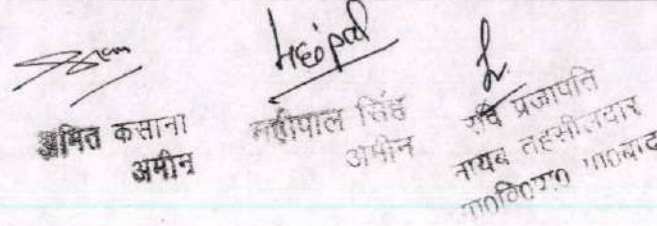 अमित कसाना
अमीन
महीपाल सिंह
अमीन
रवि प्रजापति
नायब तहसीलदार